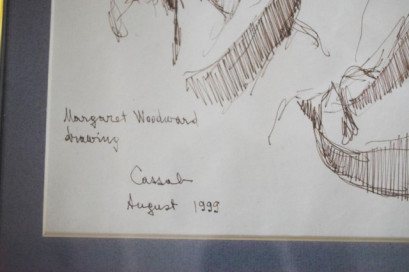 Margaret Woodward
drawing
Cassab
August 1999